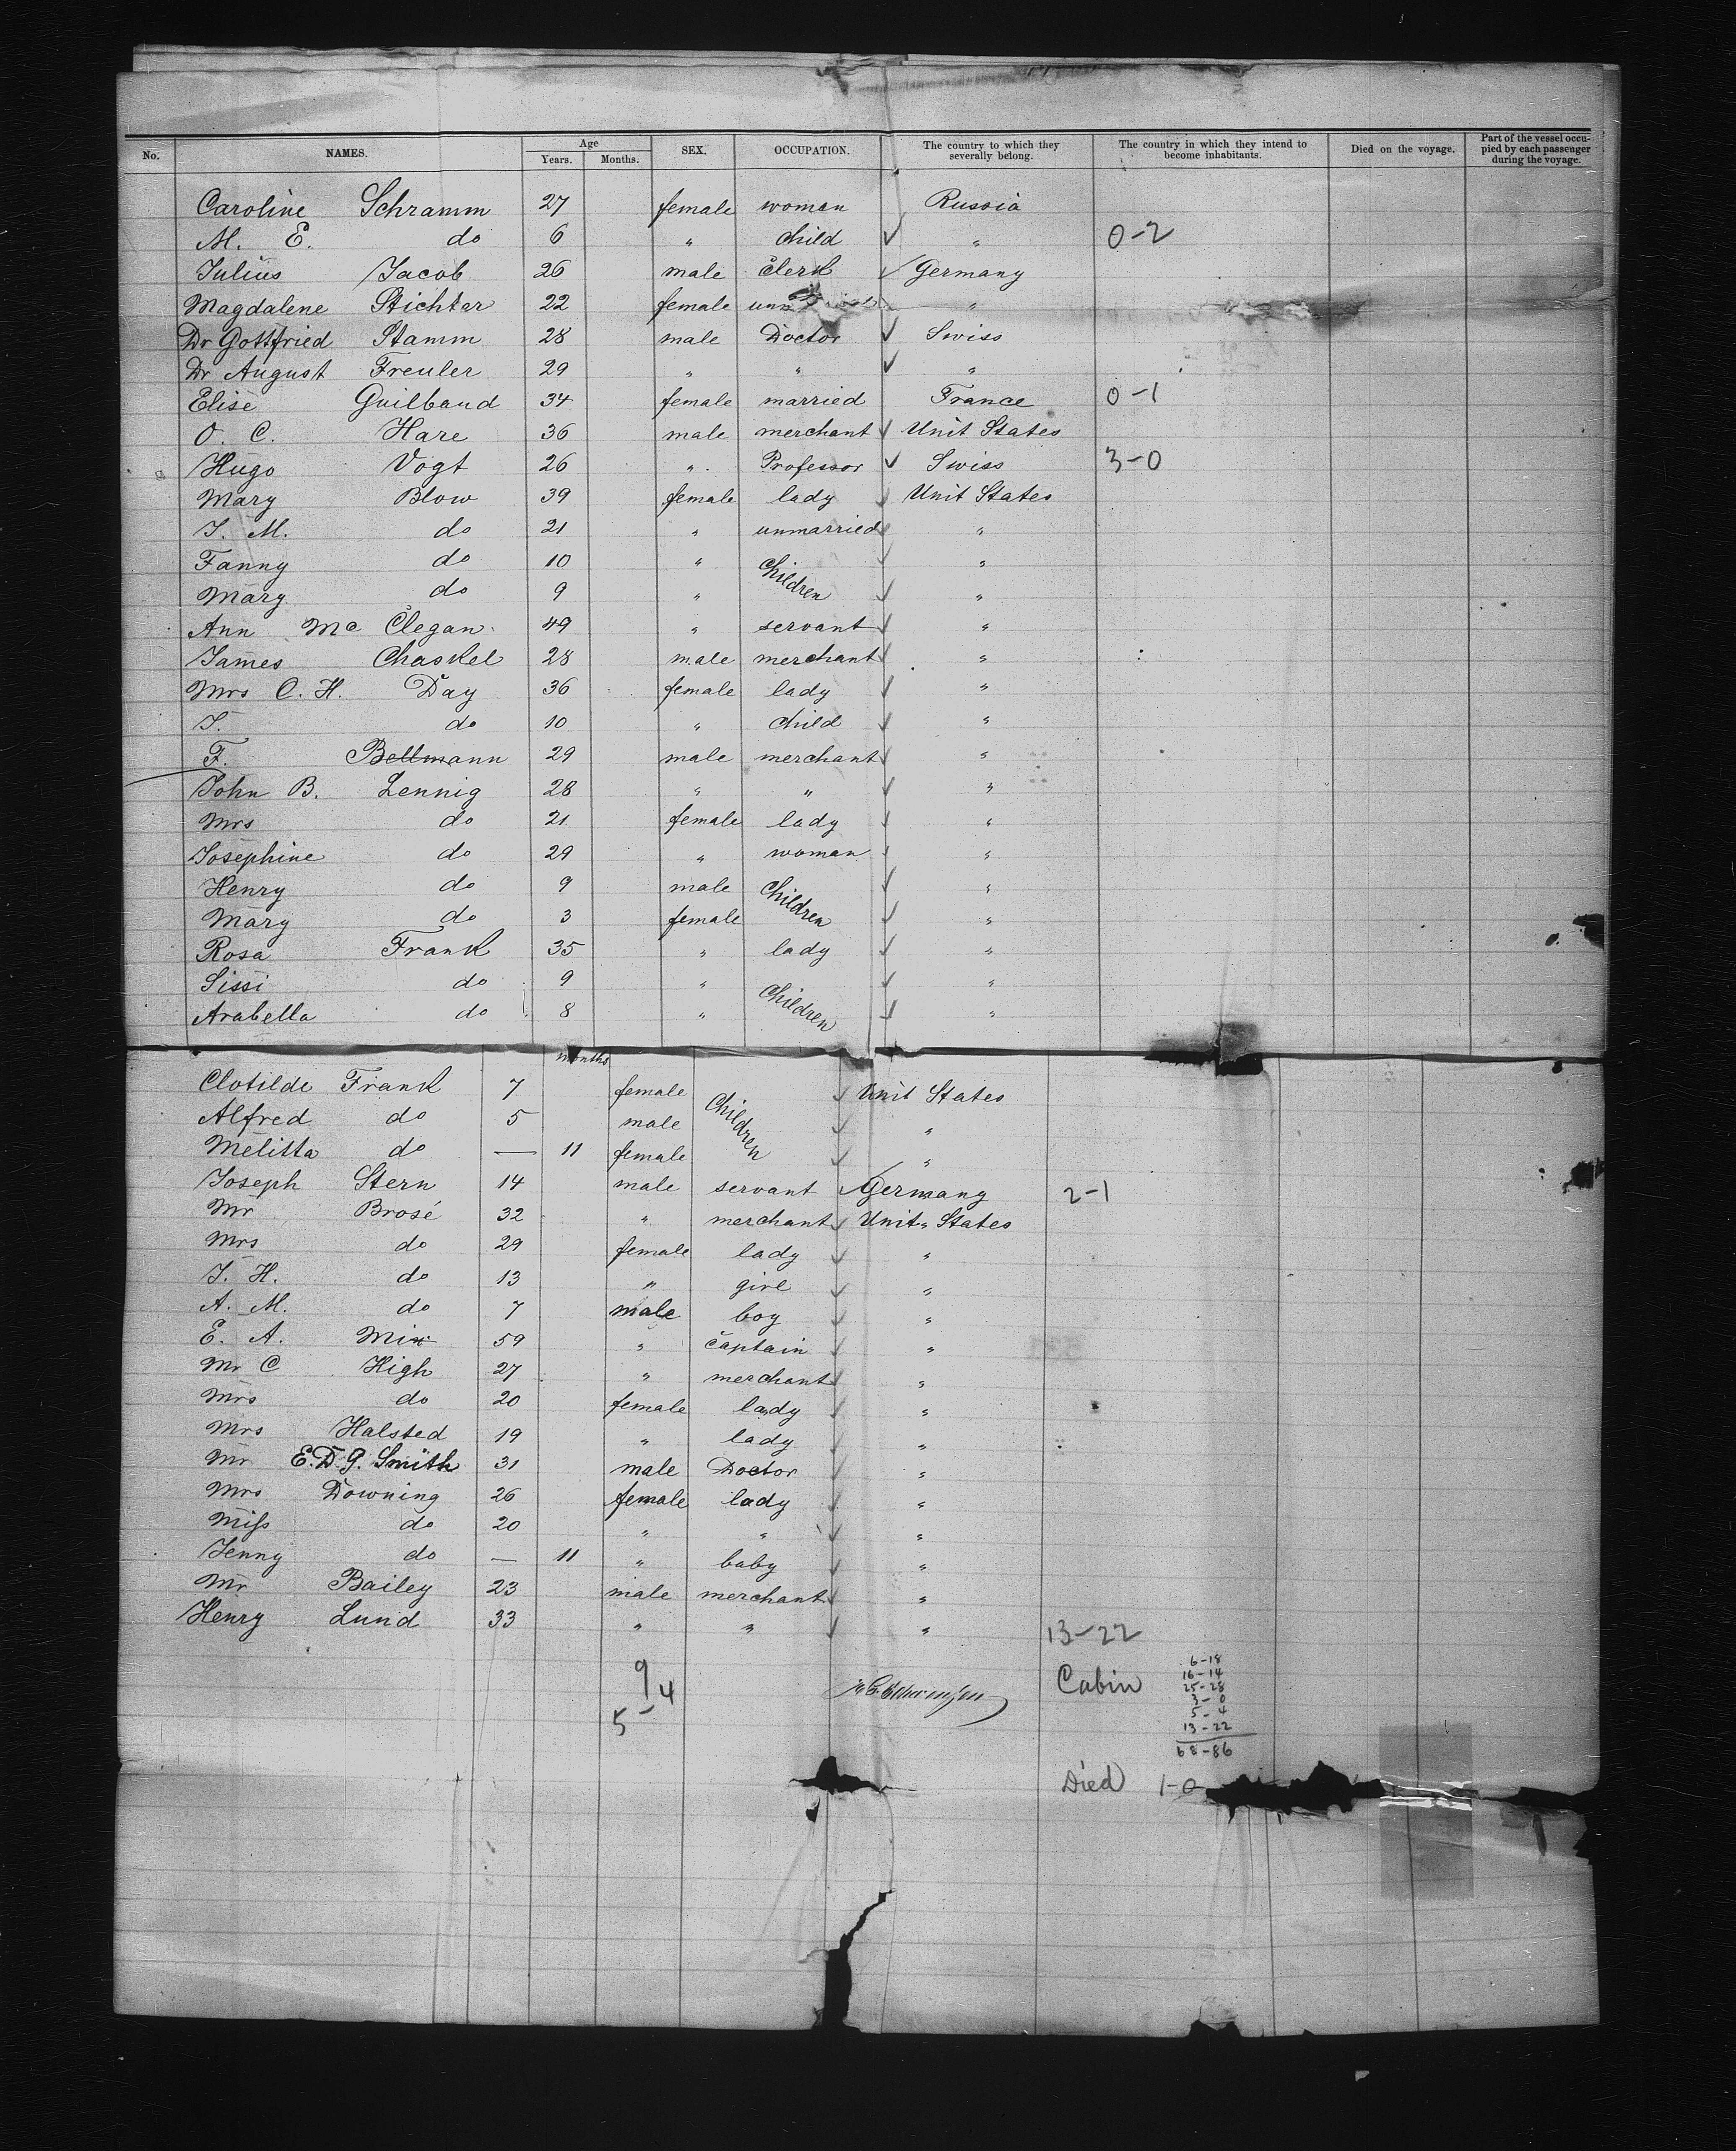 No. NAMES. Age Years. Months. SEX. OCCUPATION. The country to which they severally belong. The country in which they intend to become inhabitants. Died on the voyage. Part of the vessel occupied by each passenger during the voyage.
Caroline Schramm 27 female woman Russia
M. E. do 6 " child ✓ " 0-2
Julius Jacob 26 male Clerk ✓ Germany
Magdalene Stichter 22 female "
Dr Gottfried Stamm 28 male Doctor ✓ Swiss
Dr August Freuler 29 " " ✓ "
Elise Guilbaud 34 female married France 0-1
O. C. Hare 36 male merchant ✓ Unit States
Hugo Vogt 26 " Professor ✓ Swiss 3-0
Mary Blow 39 female lady ✓ Unit States
J. M. do 21 " unmarried ✓ "
Fanny do 10 " Children ✓ "
Mary do 9 " ✓ "
Ann Mc Clegan 49 " servant ✓ "
James Chaskel 28 male merchant ✓ "
Mrs C. H. Day 36 female lady ✓ "
J. do 10 " child ✓ "
F. Bellmann 29 male merchant ✓ "
John B. Lennig 28 " " ✓ "
Mrs do 21 female lady ✓ "
Josephine do 29 " woman ✓ "
Henry do 9 male Children ✓ "
Mary do 3 female ✓ "
Rosa Frank 35 " lady ✓ "
Sissi do 9 " Children ✓ "
Arabella do 8 " ✓ "
months
Clotilde Frank 7 female Children ✓ Unit States
Alfred do 5 male ✓ "
Melitta do — 11 female ✓ "
Joseph Stern 14 male servant ✓ Germany 2-1
Mr Brosé 32 " merchant ✓ Unit States
Mrs do 29 female lady ✓ "
J. H. do 13 " girl ✓ "
A. M. do 7 male boy ✓ "
E. A. Mix 59 " Captain ✓ "
Mr C High 27 " merchant ✓ "
Mrs do 20 female lady ✓ "
Mrs Halsted 19 " lady ✓ "
Mr E. D. G. Smith 31 male Doctor ✓ "
Mrs Downing 26 female lady ✓ "
Miss do 20 " " ✓ "
Jenny do — 11 " baby ✓ "
Mr Bailey 23 male merchant ✓ "
Henry Lund 33 " " ✓ " 13-22
9
5-4
Cabin
6-18
16-14
25-28
3-0
5-4
13-22
68-86
Died 1-0